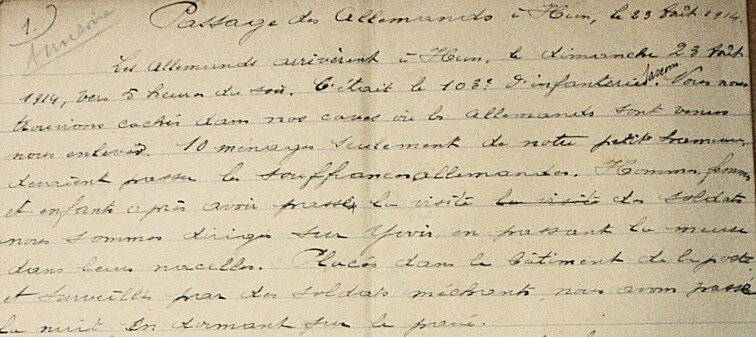 1.) Annexe
Passage des Allemands à Hun, le 23 Août 1914.
Les Allemands arrivèrent à Hun, le dimanche 23 Août
1914, vers 5 heures du soir. C'était le 103e d'infanterie saxonne. Nous nous
trouvions cachés dans nos caves où les Allemands sont venus
nous enlever. 10 ménages seulement de notre petit hameau,
devaient passer les souffrances allemandes. Hommes, femmes
et enfants après avoir passé la visite la visite des soldats
nous sommes dirigés sur Yvoir, en passant la meuse
dans leurs nacelles. Placés dans le bâtiment de la poste
et surveillés par des soldats méchants, nous avons passé
la nuit en dormant sur le pavé.